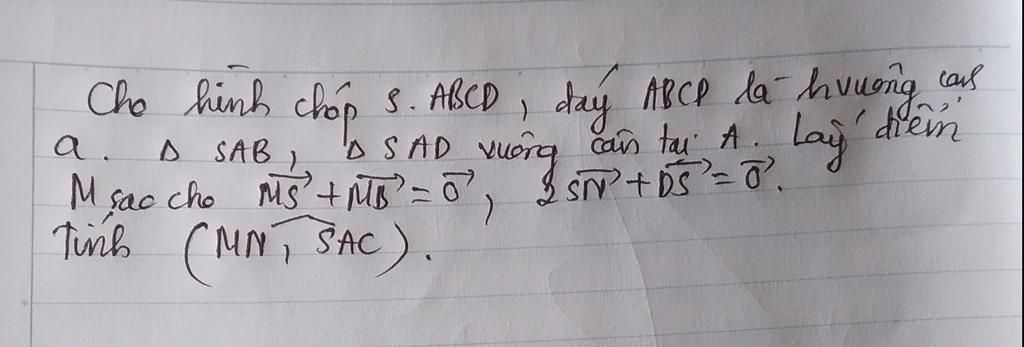 Cho hình chóp S.ABCD, đáy ABCD là hvuông cạnh
a. Δ SAB, Δ SAD vuông cân tại A. Lấy điểm
M sao cho $\overrightarrow{MS} + \overrightarrow{MB} = \vec{0}$, $2\overrightarrow{SN} + \overrightarrow{DS} = \vec{0}$.
Tính $(\widehat{MN, SAC})$.